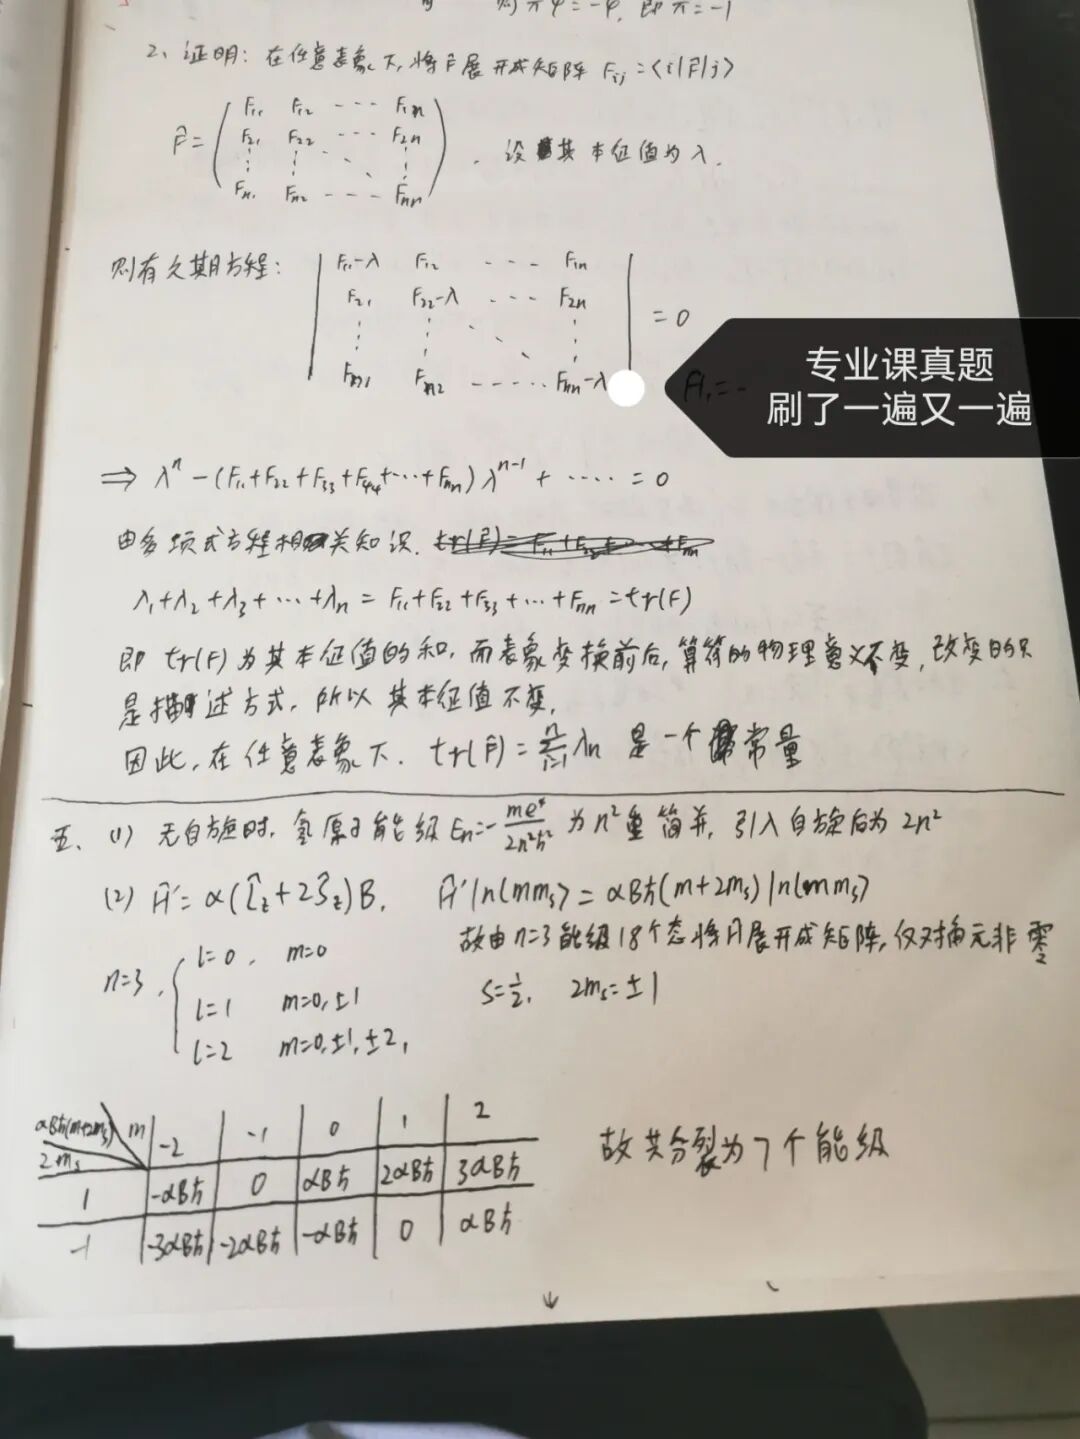 则πφ=-φ, 即π=-1
2、证明: 在任意表象下, 将F̂展开成矩阵 Fij=<i|F̂|j>
F̂=
F11 F12 --- F1n
F21 F22 --- F2n
Fn1 Fn2 --- Fnn
, 设其本征值为λ.
则有久期方程:
F11-λ F12 --- F1n
F21 F22-λ --- F2n
Fn1 Fn2 ----- Fnn-λ
=0
专业课真题
刷了一遍又一遍
⇒ λ^n-(F11+F22+F33+F44+…+Fnn)λ^(n-1)+……=0
由多项式方程相关知识.
λ1+λ2+λ3+…+λn=F11+F22+F33+…+Fnn=tr(F)
即tr(F)为其本征值的和, 而表象变换前后, 算符的物理意义不变, 改变的只
是描述方式, 所以其本征值不变,
因此, 在任意表象下. tr(F̂)=Σλn 是一个常量
五、(1) 无自旋时, 氢原子能级En=-me⁴/2n²ħ² 为n²重简并, 引入自旋后为2n²
(2) Ĥ'=α(L̂z+2Ŝz)B, Ĥ'|nlmms>=αBħ(m+2ms)|nlmms>
故由n=3能级18个态将Ĥ展开成矩阵, 仅对角元非零
n=3,
l=0, m=0
l=1 m=0,±1
l=2 m=0,±1,±2,
S=1/2, 2ms=±1
αBħ(m+2ms) m -2 -1 0 1 2
2ms
1 -αBħ 0 αBħ 2αBħ 3αBħ
-1 -3αBħ -2αBħ -αBħ 0 αBħ
故共分裂为7个能级